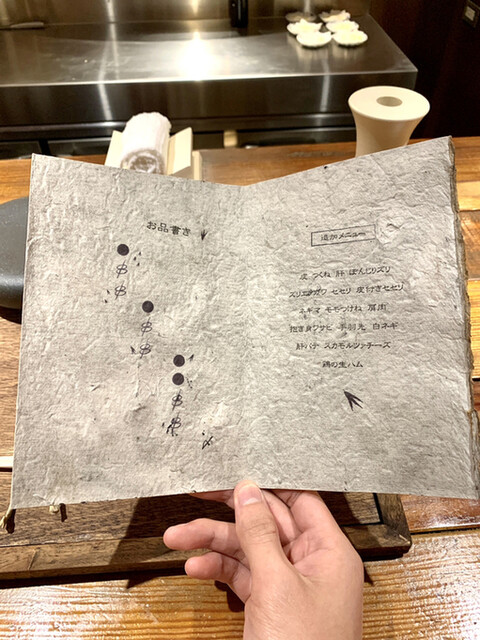 お品書き
追加メニュー
皮 つくね 肝 ぼんじり ズリ
ズリエンガワ セセリ 皮付きセセリ
ネギマ モモつけね 肩肉
抱き身ワサビ 手羽先 白ネギ
肝パテ スカモルツァチーズ
鶏の生ハム